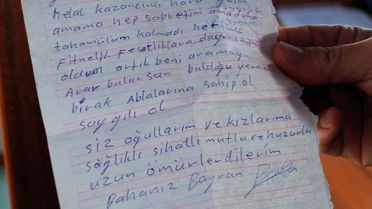 Helal kazancımı
amama hep sabrettim
tahamülum kalmadı her
Fitnelik Fesatlıklara
oldum artık beni aramayın
Arar bulursan bulduğu yerde
bırak Ablalarına sahip ol
saygılı ol
siz oğullarım ve kızlarıma
sağlıklı sihatli mutlu ve huzurlu
uzun ömürler dilerim
Babanız Bayram